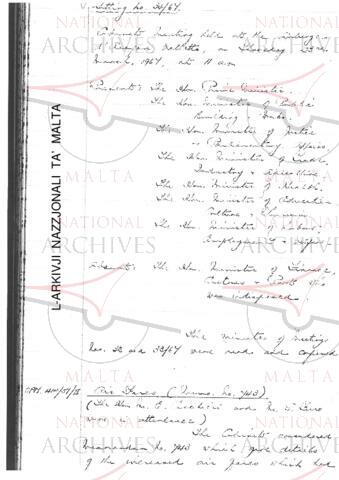 Meeting No. 34/67.
Cabinet meeting held at the Auberge
d'Aragon, Valletta, on Thursday 23rd
March, 1967, at 11 a.m.
Present: The Hon. Prime Minister.
The Hon. Minister of Public
Building & Works.
The Hon. Minister of Justice
& Parliamentary Affairs.
The Hon. Minister of Trade,
Industry & Agriculture.
The Hon. Minister of Health.
The Hon. Minister of Education,
Culture & Tourism.
The Hon. Minister of Labour,
Employment &
Absent: The Hon. Minister of Finance,
Customs & Ports who
was indisposed.
The minutes of meetings
Nos. 32 and 33/67 were read and confirmed
Air Fares (Memo. No. 743)
(The Hon. Mr. E. and Mr.
were in attendance)
The Cabinet considered
memorandum No. 743 which gave details
of the increased air fares which had
L-ARKIVJI NAZZJONALI TA' MALTA
NATIONAL
ARCHIVES
MALTA
NATIONAL
ARCHIVES
MALTA
NATIONAL
ARCHIVES
MALTA
NATIONAL
ARCHIVES